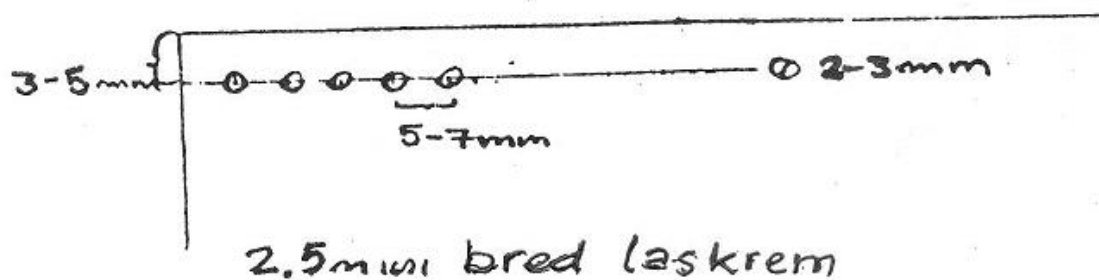 3-5mm
⌀ 2-3mm
5-7mm
2.5mm bred laskrem